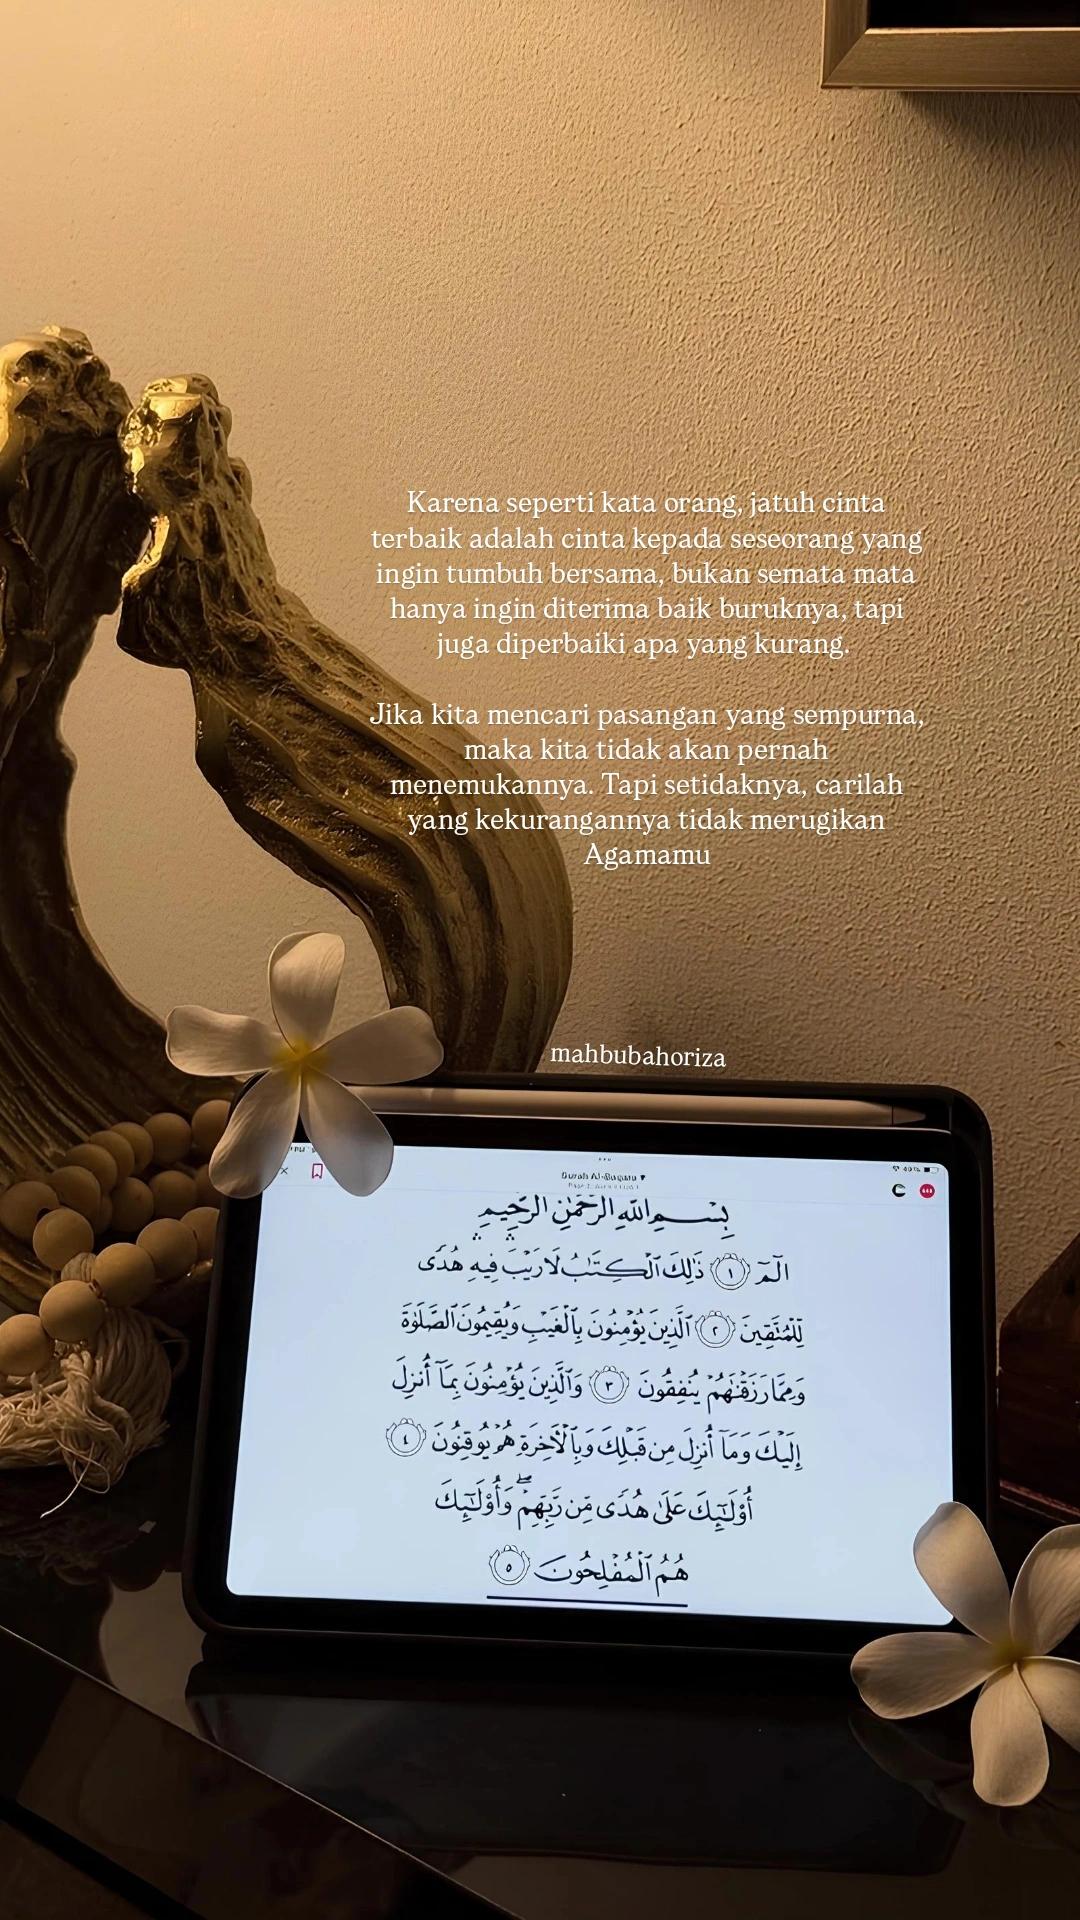 Karena seperti kata orang, jatuh cinta
terbaik adalah cinta kepada seseorang yang
ingin tumbuh bersama, bukan semata mata
hanya ingin diterima baik buruknya, tapi
juga diperbaiki apa yang kurang.
Jika kita mencari pasangan yang sempurna,
maka kita tidak akan pernah
menemukannya. Tapi setidaknya, carilah
yang kekurangannya tidak merugikan
Agamamu
mahbubahoriza
49%
Surah Al-Baqara
بِسْمِ اللَّهِ الرَّحْمَٰنِ الرَّحِيمِ
الٓمٓ ١ ذَٰلِكَ ٱلْكِتَٰبُ لَا رَيْبَ ۛ فِيهِ ۛ هُدًى
لِّلْمُتَّقِينَ ٢ ٱلَّذِينَ يُؤْمِنُونَ بِٱلْغَيْبِ وَيُقِيمُونَ ٱلصَّلَوٰةَ
وَمِمَّا رَزَقْنَٰهُمْ يُنفِقُونَ ٣ وَٱلَّذِينَ يُؤْمِنُونَ بِمَآ أُنزِلَ
إِلَيْكَ وَمَآ أُنزِلَ مِن قَبْلِكَ وَبِٱلْءَاخِرَةِ هُمْ يُوقِنُونَ ٤
أُو۟لَٰٓئِكَ عَلَىٰ هُدًى مِّن رَّبِّهِمْ ۖ وَأُو۟لَٰٓئِكَ
هُمُ ٱلْمُفْلِحُونَ ٥